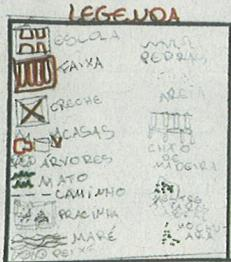 LEGENDA
ESCOLA
FAIXA
CRECHE
CASAS
ÁRVORES
MATO
CAMINHO
PRACINHA
MARÉ
PEIXE
PEDRAS
AREIA
CHÃO
DE
MADEIRA